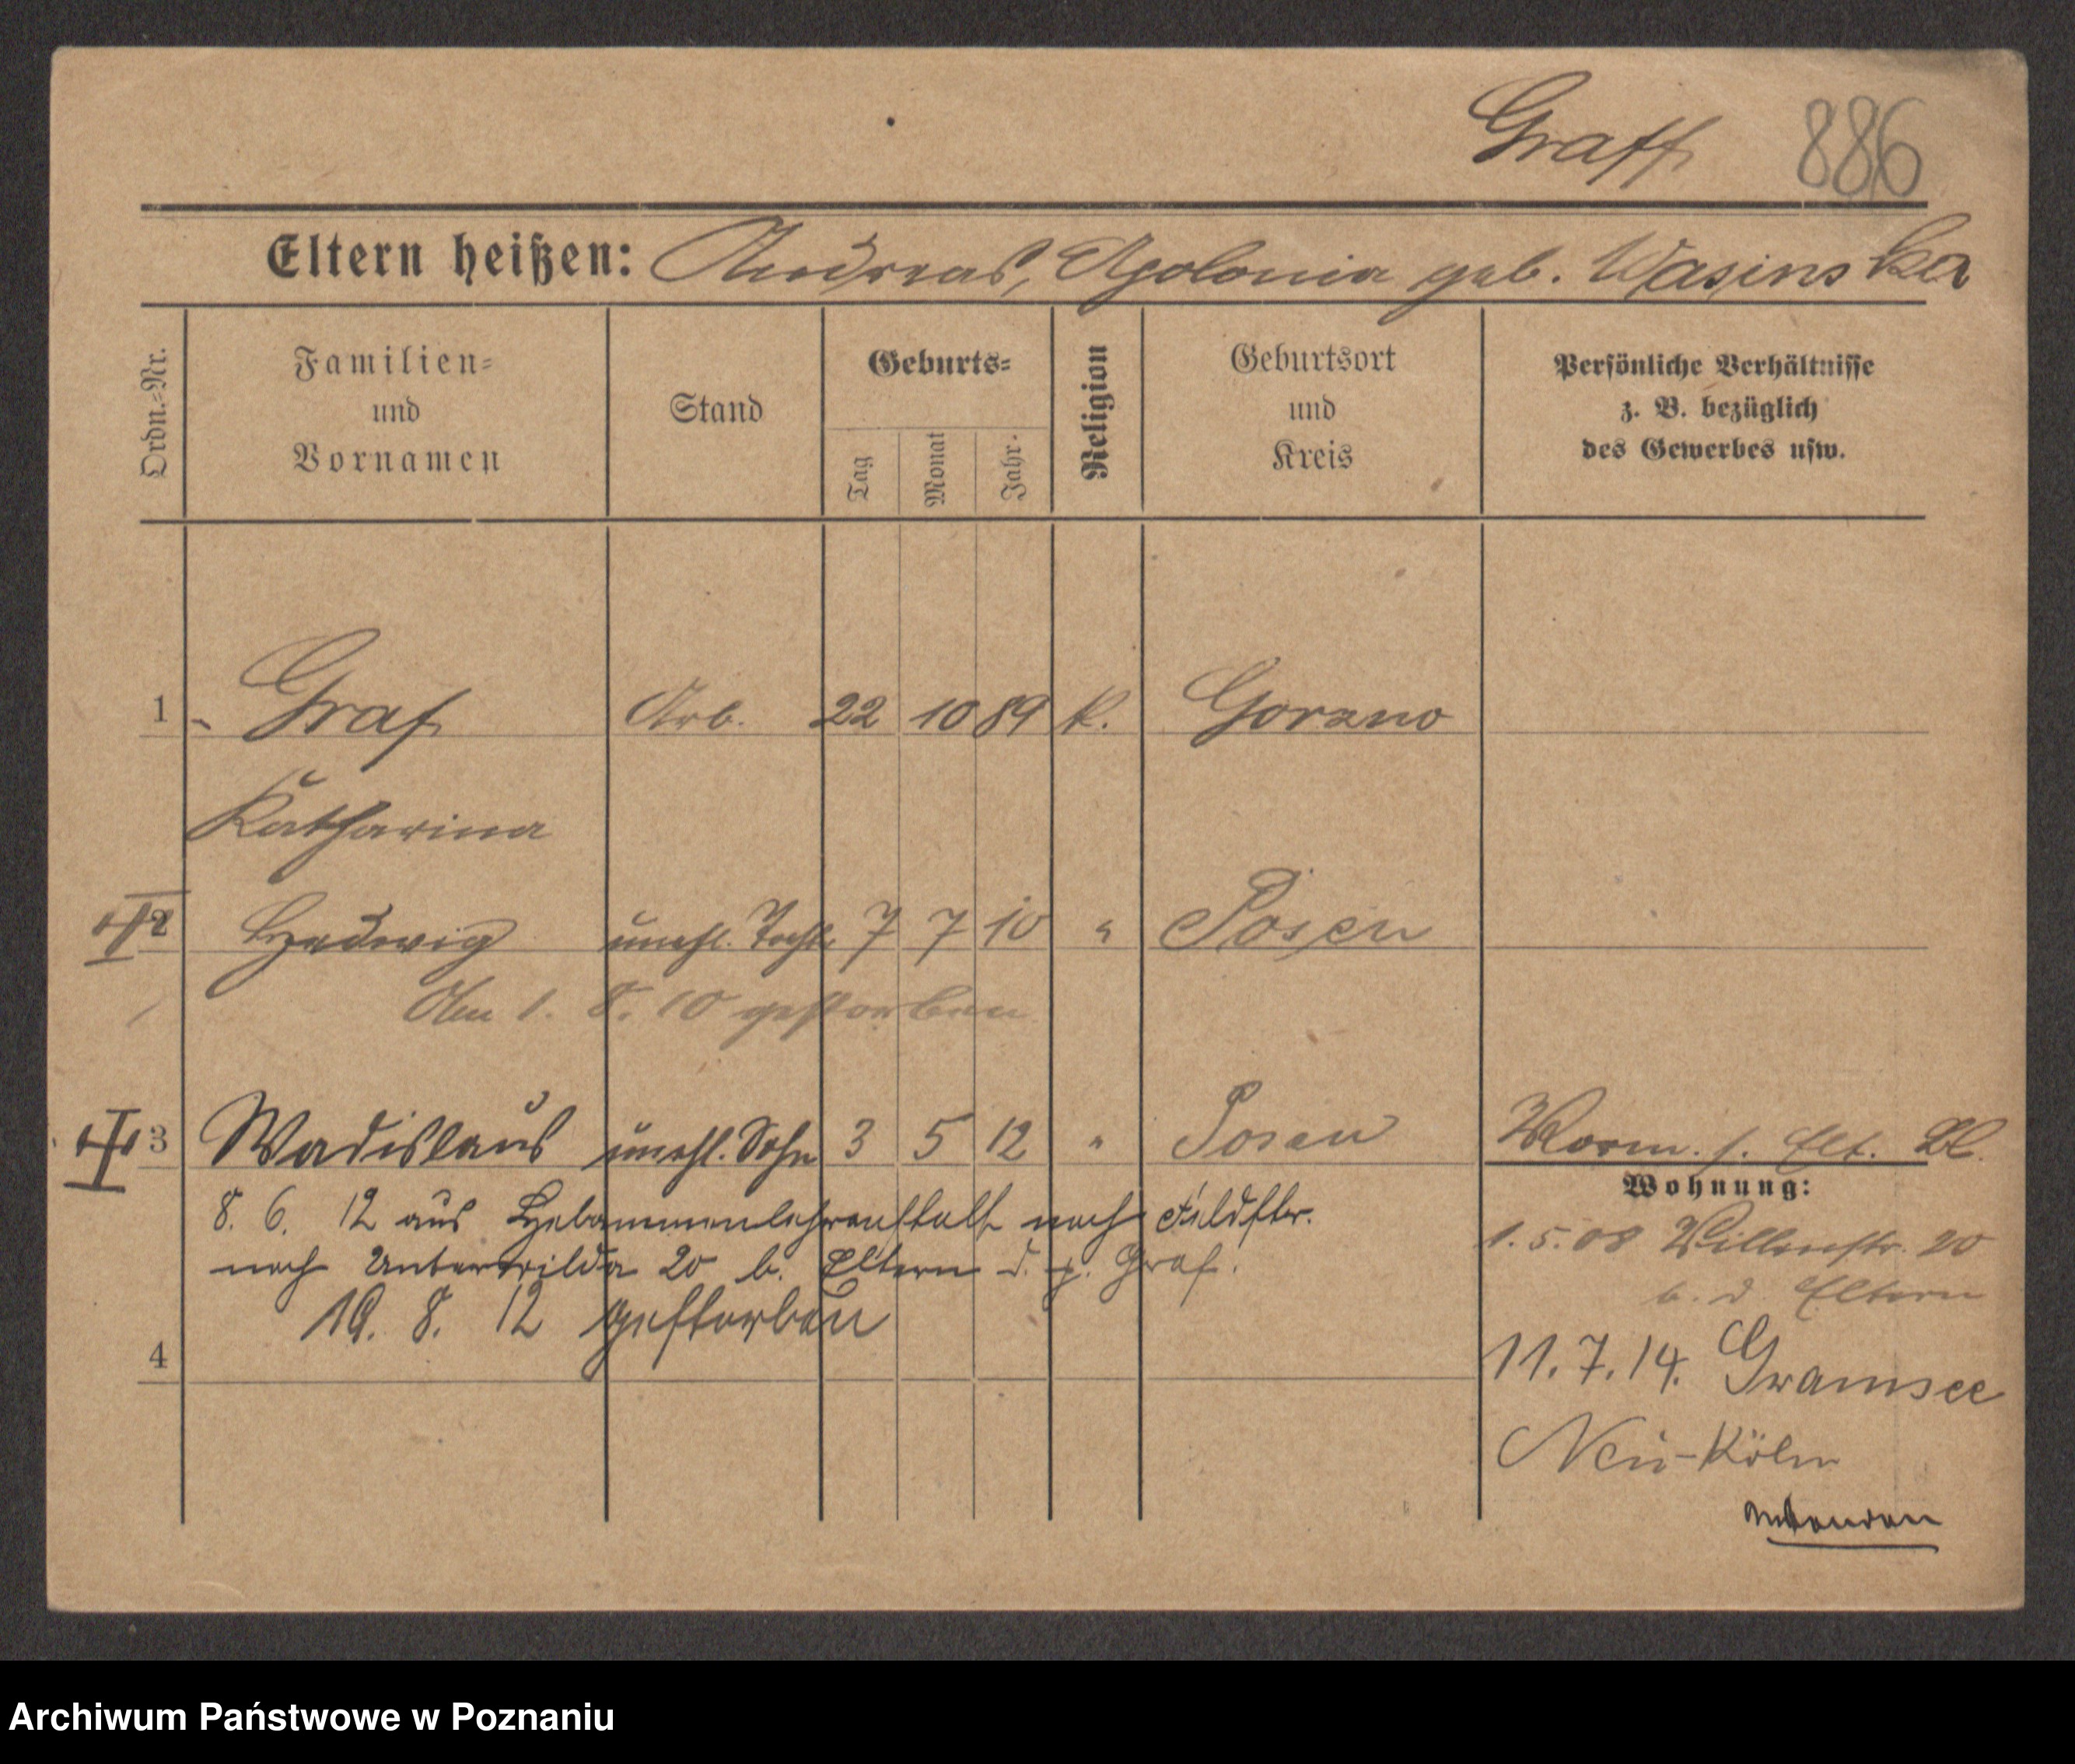 Graff 886
Eltern heißen: Andreas, Apolonia geb. Wasinska
Ordn.=Nr.
Familien=
und
Vornamen
Stand
Geburts=
Tag
Monat
Jahr.
Religion
Geburtsort
und
Kreis
Persönliche Verhältnisse
z. B. bezüglich
des Gewerbes usw.
1 Graf Arb. 22 10 89 k. Gorzno
Katharina
2 Hedwig unehl. Tocht. 7 7 10 " Posen
Am 1. 8. 10 gestorben
3 Wadislaus unehl. Sohn 3 5 12 " Posen
8. 6. 12 aus Hebammenlehranstalt nach
nach Unterwilda 20 b. Eltern d. p. Graf.
19. 8. 12 gestorben
4
Worm. s. Elt. Bl.
Wohnung:
1.5.08 20
b. d. Eltern
11.7.14. Gramsee
Neu-Köln
Archiwum Państwowe w Poznaniu